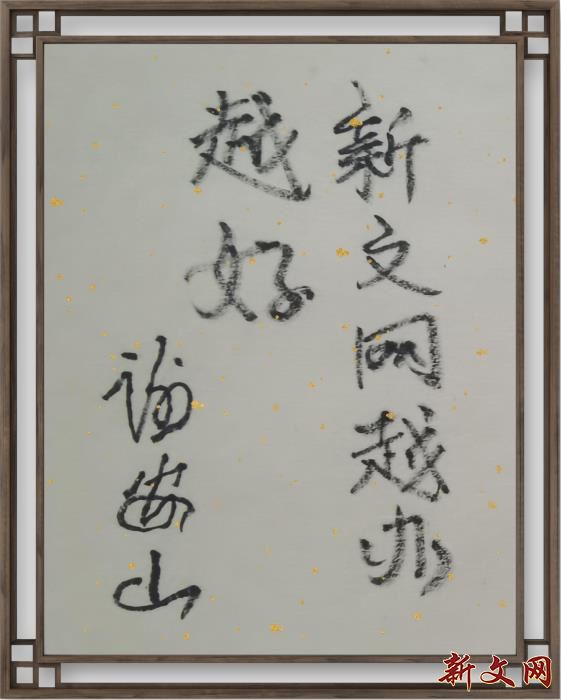 新文网越办
越好
山
新文网